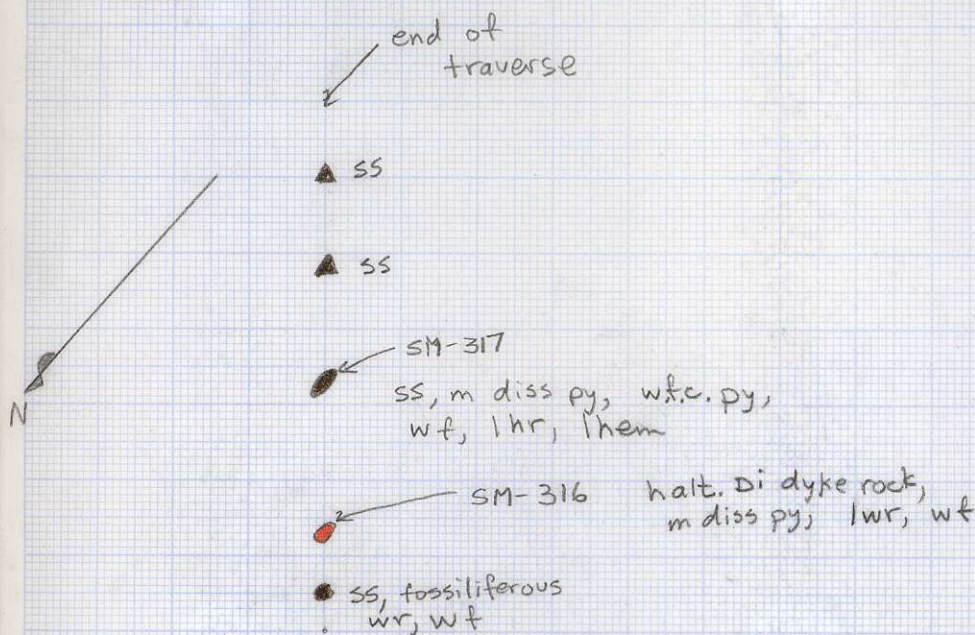 end of
traverse
ss
ss
N
SM-317
ss, m diss py, w.f.c. py,
wf, lhr, lhem
SM-316 halt. Di dyke rock,
m diss py, lwr, wf
ss, fossiliferous
wr, wf